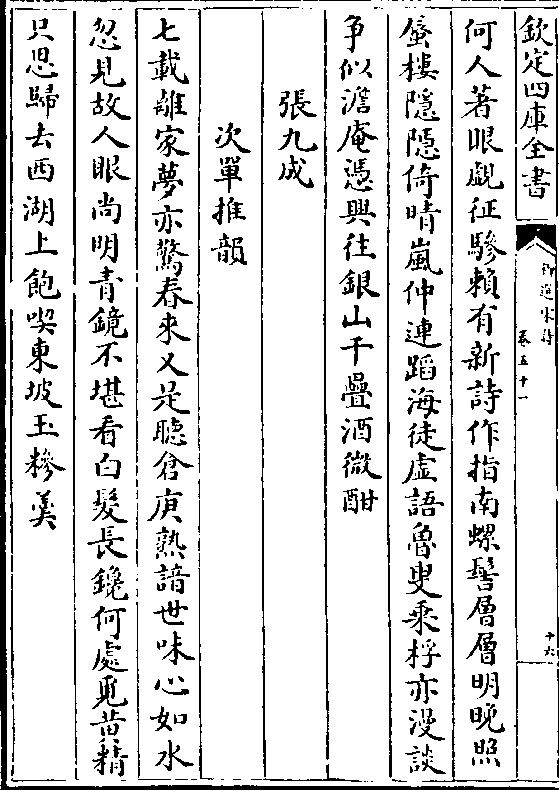 欽定四庫全書
御選宋詩
卷五十一
十六
何人著眼覷征驂頼有新詩作指南螺髻層層明晚照
蜃樓隱隱倚晴嵐仲連蹈海徒虛語魯叟乘桴亦漫談
争似澹庵憑興往銀山千疊酒微酣
張九成
次單推韻
七載離家夢亦驚春來又是聽倉庚熟諳世味心如水
忽見故人眼尚明青鏡不堪看白髮長鑱何處覓黄精
只思歸去西湖上飽喫東坡玉糝羮